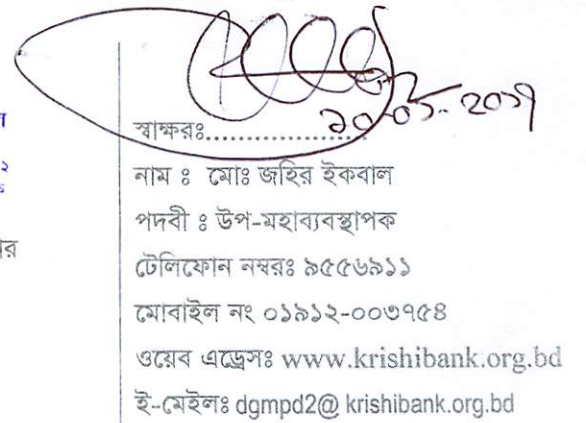 স্বাক্ষরঃ....................
নাম ঃ মোঃ জহির ইকবাল
পদবী ঃ উপ-মহাব্যবস্থাপক
টেলিফোন নম্বরঃ ৯৫৫৬৯১১
মোবাইল নং ০১৯১২-০০৩৭৫৪
ওয়েব এড্রেসঃ www.krishibank.org.bd
ই-মেইলঃ dgmpd2@ krishibank.org.bd